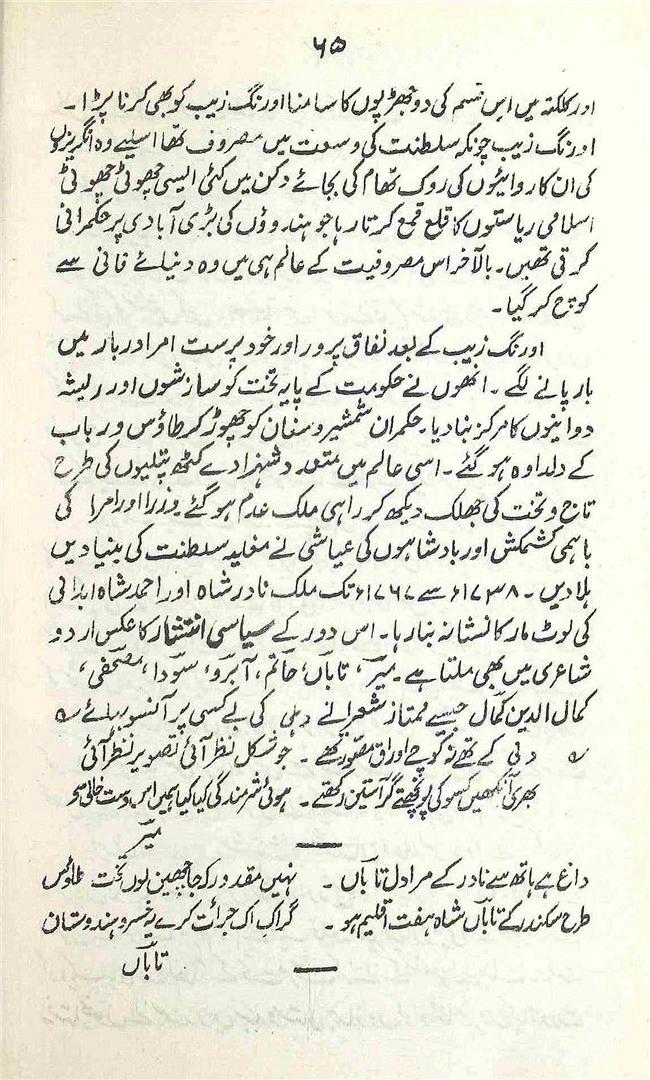 ۶۵
اور کلکتہ میں اس قسم کی دو جھڑپوں کا سامنا اورنگ زیب کو بھی کرنا پڑا۔
اورنگ زیب چونکہ سلطنت کی وسعت میں مصروف تھا اسلیے وہ انگریزوں
کی ان کاروائیوں کی روک تھام کی بجائے دکن میں کئی ایسی چھوٹی چھوٹی
اسلامی ریاستوں کا قلع قمع کرتا رہا جو ہندوؤں کی بڑی آبادی پر حکمرانی
کرتی تھیں۔ بالآخر اس مصروفیت کے عالم ہی میں وہ دنیائے فانی سے
کوچ کر گیا۔
اورنگ زیب کے بعد نفاق پرور اور خود پرست امرا دربار میں
بار پانے لگے۔ انھوں نے حکومت کے پایہ تخت کو سازشوں اور ریشہ
دوانیوں کا مرکز بنا دیا۔ حکمران شمشیر و سنان کو چھوڑ کر طاؤس و رباب
کے دلدادہ ہو گئے۔ اسی عالم میں متعدد شہزادے کٹھ پتلیوں کی طرح
تاج و تخت کی جھلک دیکھ کر راہی ملک عدم ہو گئے۔ وزرا اور امرا کی
باہمی کشمکش اور بادشاہوں کی عیاشی نے مغلیہ سلطنت کی بنیادیں
ہلا دیں۔ ۱۷۳۸ء سے ۱۷۶۷ء تک ملک نادر شاہ اور احمد شاہ ابدالی
کی لوٹ مار کا نشانہ بنا رہا۔ اس دور کے سیاسی انتشار کا عکس اردو
شاعری میں بھی ملتا ہے۔ میرؔ، تاباںؔ، حاتمؔ، آبروؔ، سوداؔ، مصحفیؔ،
کمال الدین کمالؔ جیسے ممتاز شعرا نے دہلی کی بے کسی پر آنسو بہائے ؎
؎ دلی کے تھے نہ کوچے اوراق مصور تھے۔ جو شکل نظر آئی تصویر نظر آئی
بھری آنکھیں کسو کی پونچھتے گر آستین رکھتے۔ ہوئی شرمندگی کیا کیا ہمیں اس دست خالی سے
میرؔ
داغ ہے ہاتھ سے نادر کے مرا دل تاباںؔ۔ نہیں مقدور کہ جا چھین لوں تخت طاؤس
طرح سکندر کے تاباںؔ شاہ ہفت اقلیم ہو۔ گر اک جرأت کرے خسرو ہندوستان
تاباںؔ